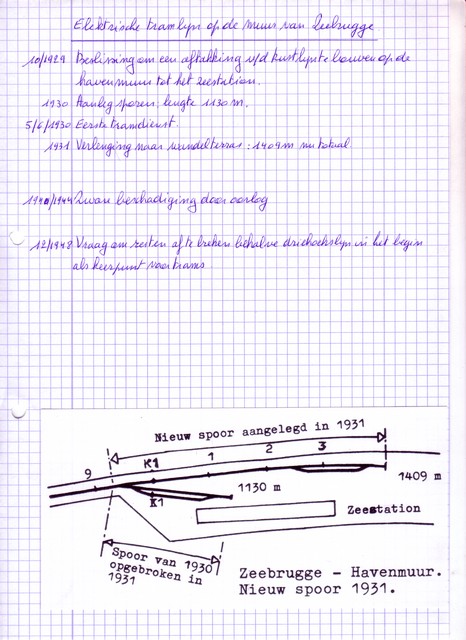 Elektrische tramlijn op de muur van Zeebrugge
10/1929 Beslissing om een aftakking v/d kustlijn te bouwen op de
havenmuur tot het zeestation.
1930 Aanleg sporen: lengte 1130 m.
5/6/1930 Eerste tramdienst.
1931 Verlenging naar wandelterras: 1409 m nu totaal
1940/1944 Zware beschadiging door oorlog
12/1948 Vraag om resten af te breken behalve driehoekslijn in het begin
als keerpunt voor trams
Nieuw spoor aangelegd in 1931
9
K1
1
2
3
1409 m
1130 m
K1
Zeestation
Spoor van 1930
opgebroken in
1931
Zeebrugge - Havenmuur.
Nieuw spoor 1931.